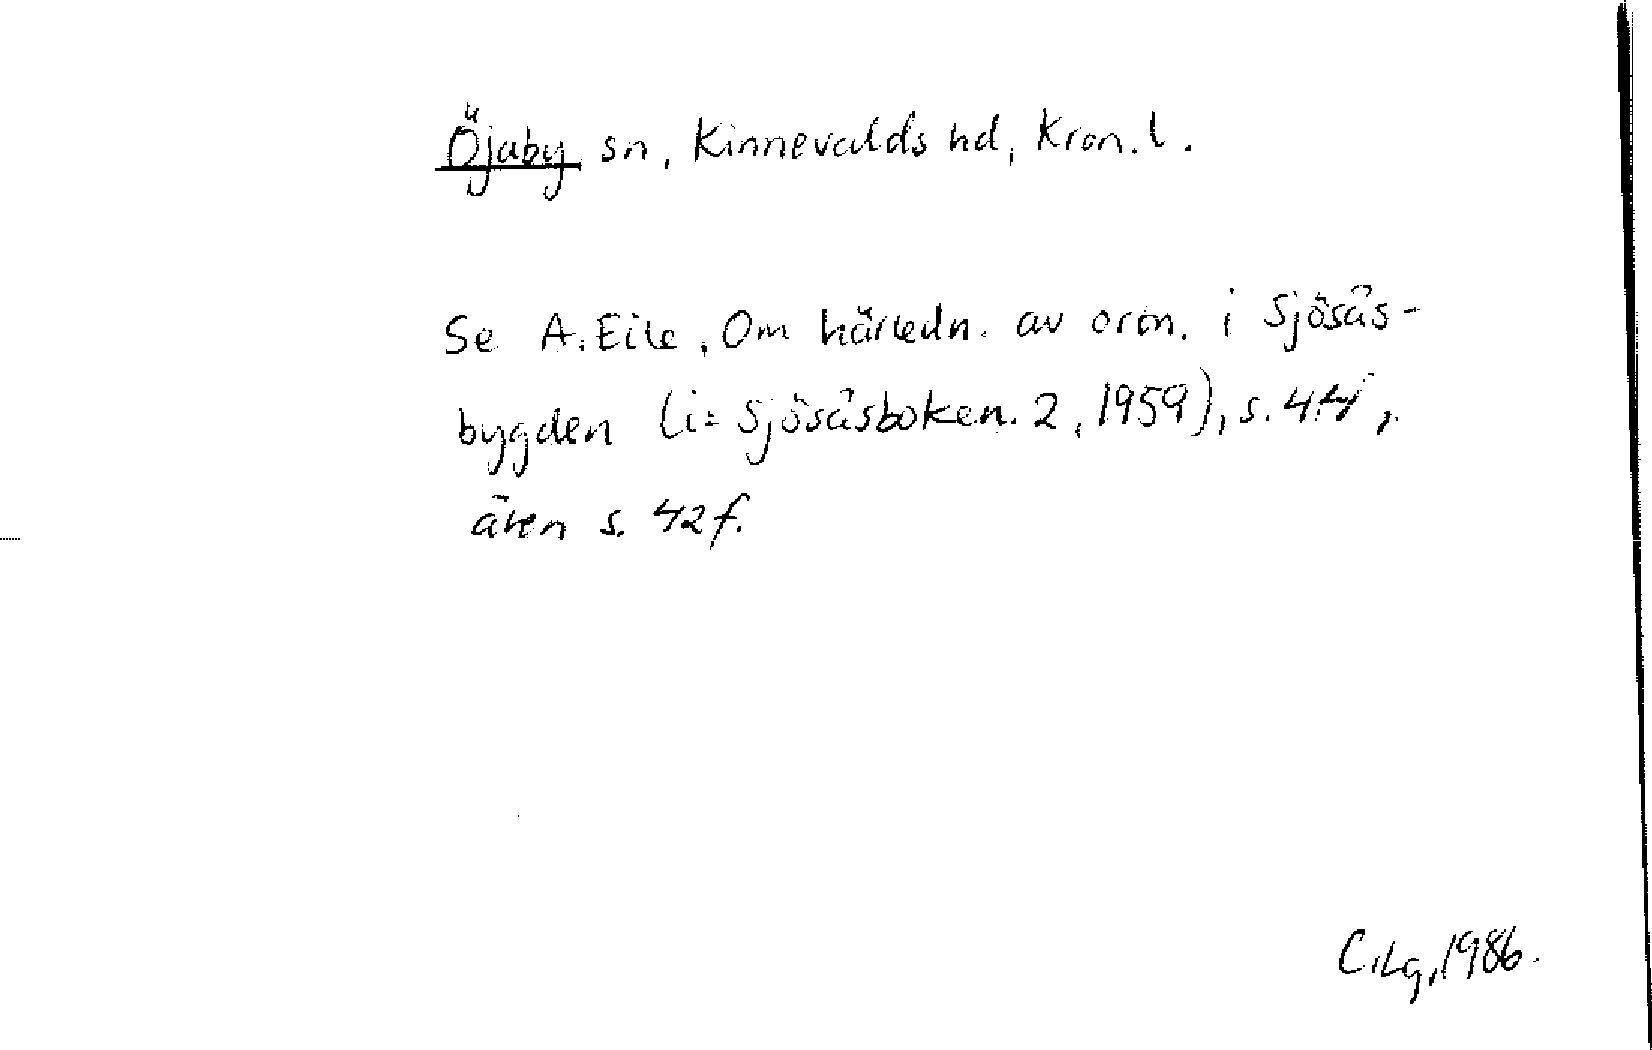 Öjaby sn, Kinnevalds hd, Kron. l.
Se A. Eile, Om härledn. av ortn. i Sjösås-
bygden (i: Sjösåsboken. 2, 1959), s. 44,
även s. 42 f.
C. Lg, 1986.